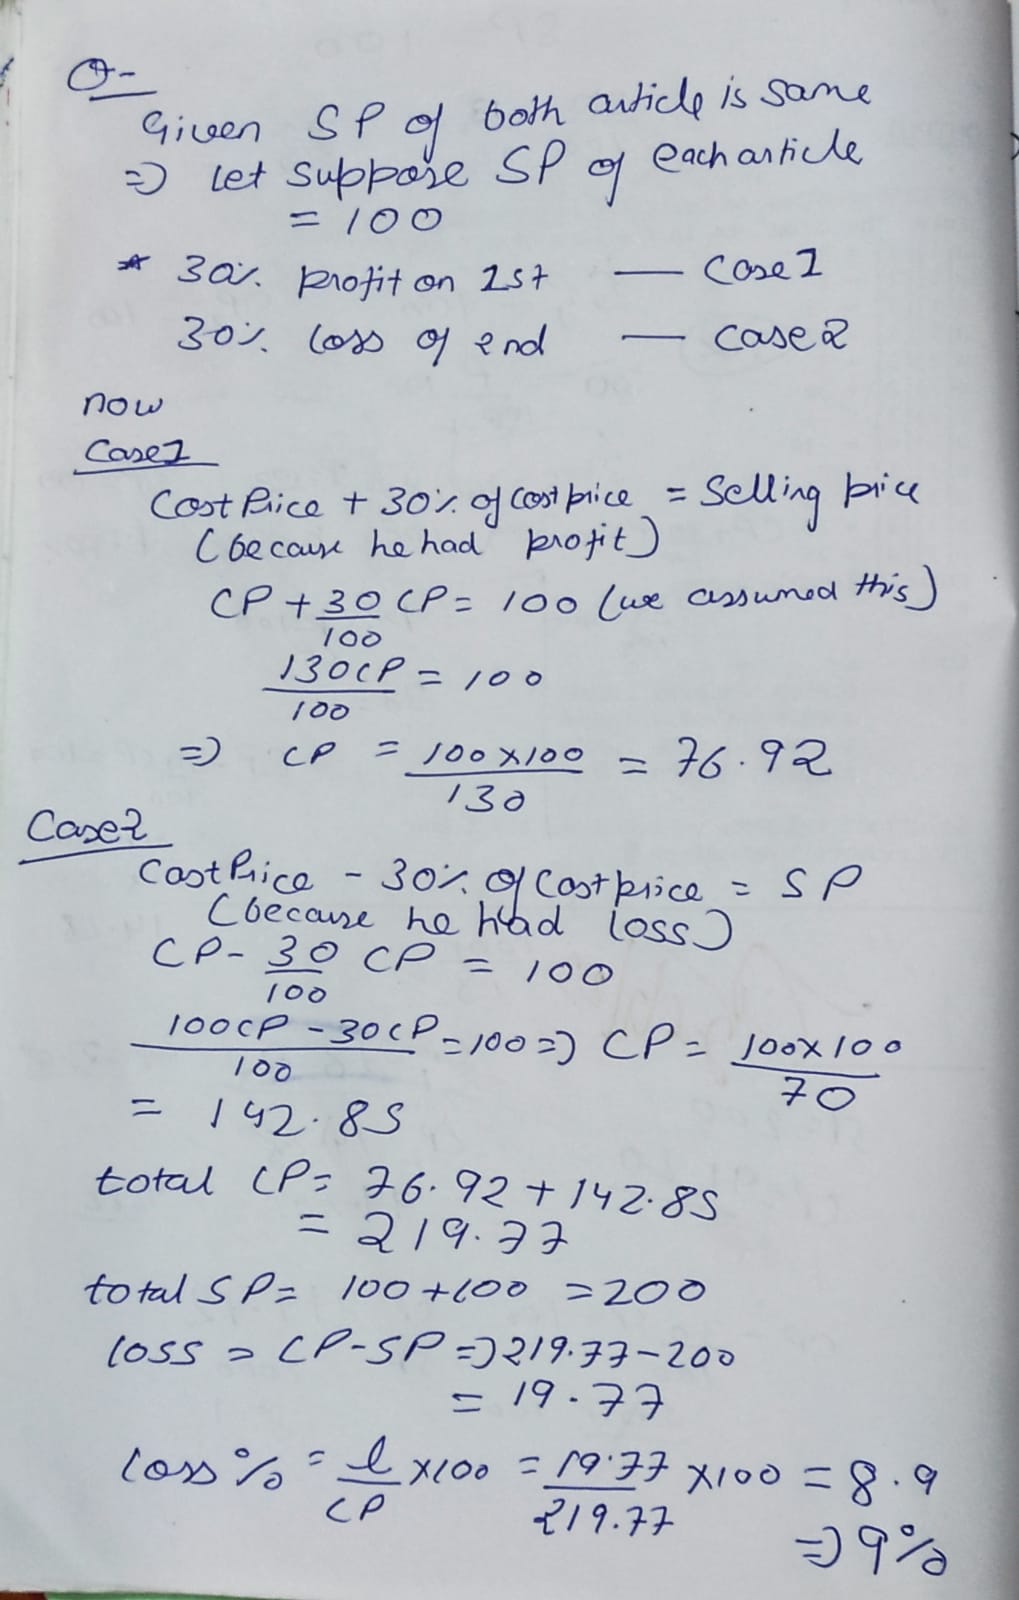 Q-
Given SP of both article is same
=> let suppose SP of each article
= 100
* 30% profit on 1st — Case 1
30% loss of 2nd — case 2
now
Case 1
Cost Price + 30% of cost price = Selling price
(because he had profit)
CP + 30/100 CP = 100 (we assumed this)
130CP/100 = 100
=> CP = 100×100/130 = 76.92
Case 2
Cost Price - 30% of Cost price = SP
(because he had loss)
CP - 30/100 CP = 100
100CP - 30CP/100 = 100 => CP = 100×100/70
= 142.85
total CP = 76.92 + 142.85
= 219.77
total SP = 100 + 100 = 200
loss = CP-SP => 219.77-200
= 19.77
loss % = l/CP ×100 = 19.77/219.77 ×100 = 8.9
=> 9%